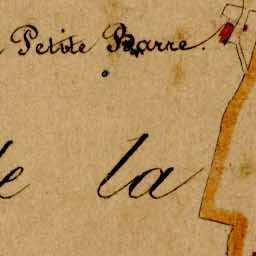 Petite Barre.
la